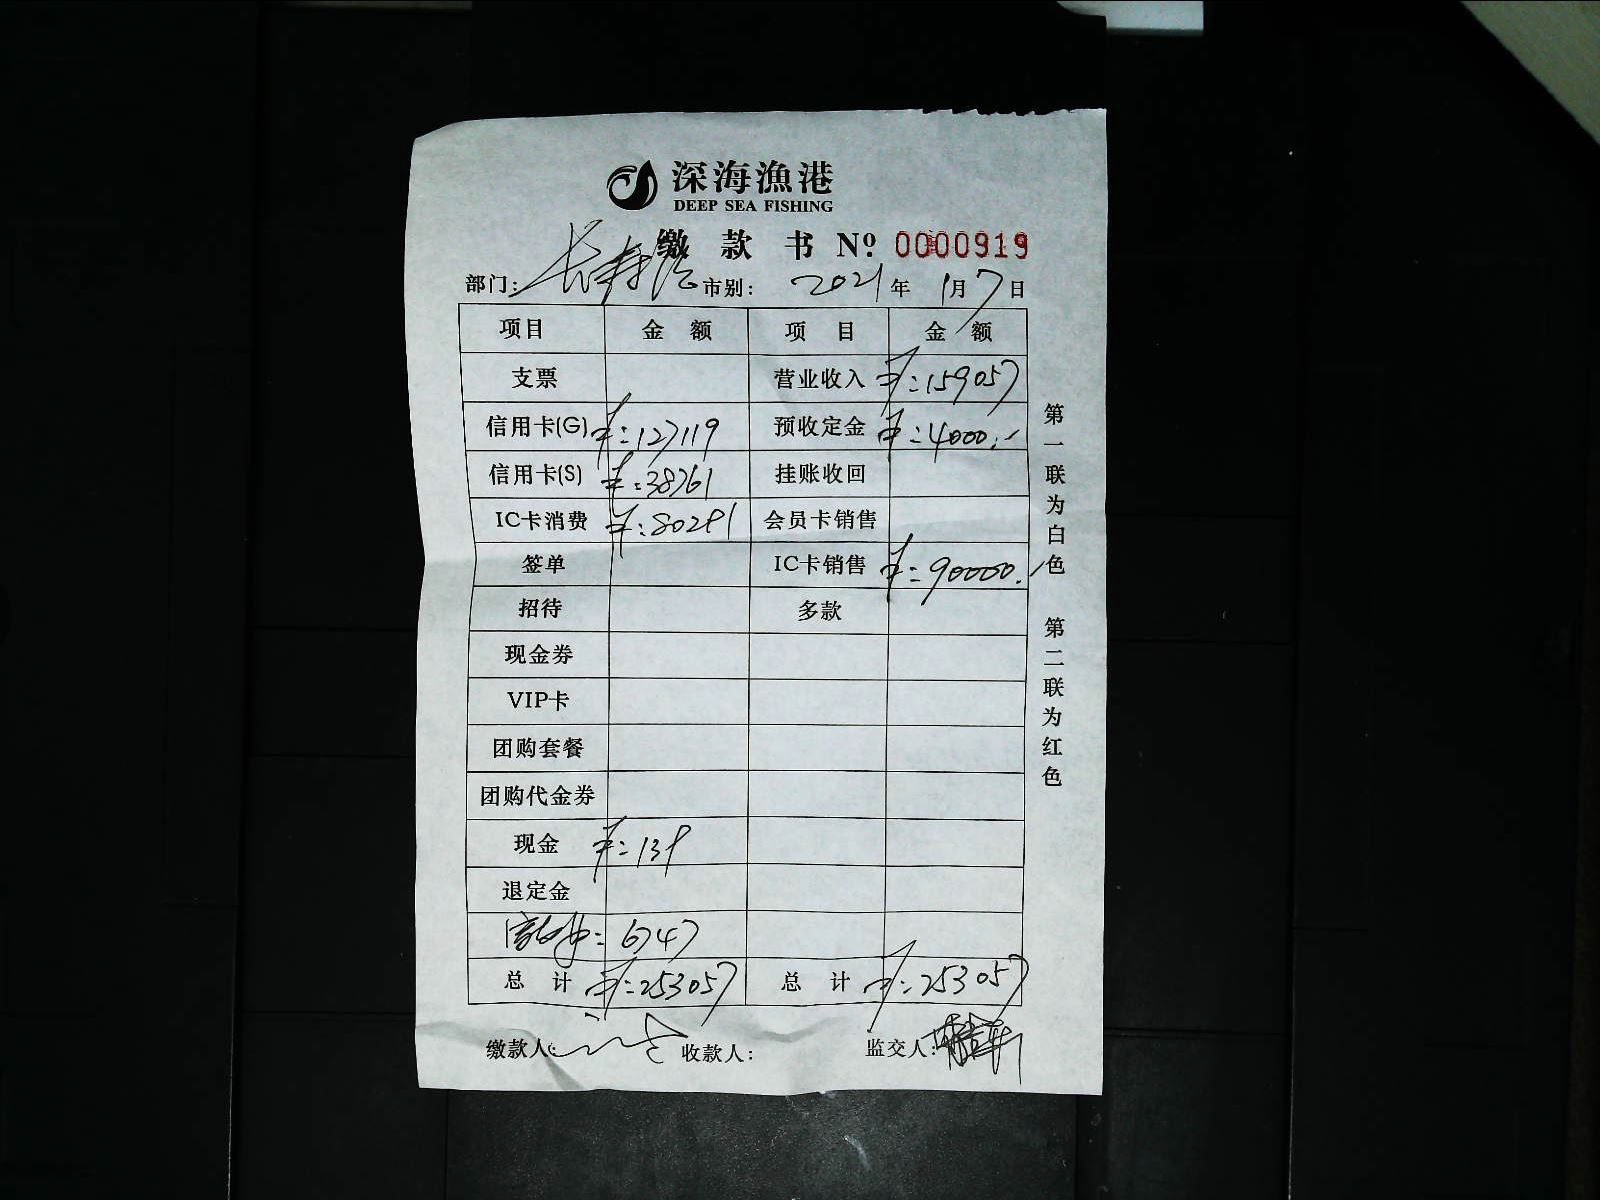 深海漁港
DEEP SEA FISHING
缴款书 Nº: 0000919
部门: 长寿路 市别: 2021年1月7日
项目 金额 项目 金额
支票 营业收入 ¥:159057
信用卡(G) ¥:127119 预收定金 ¥:4000.-
信用卡(S) ¥:38761 挂账收回
IC卡消费 ¥:80291 会员卡销售
签单 IC卡销售 ¥:90000.-
招待 多款
现金券
VIP卡
团购套餐
团购代金券
现金 ¥:139
退定金
: 6747
总计 ¥:253057 总计 ¥:253057
缴款人: 收款人: 监交人:
第一联为白色 第二联为红色